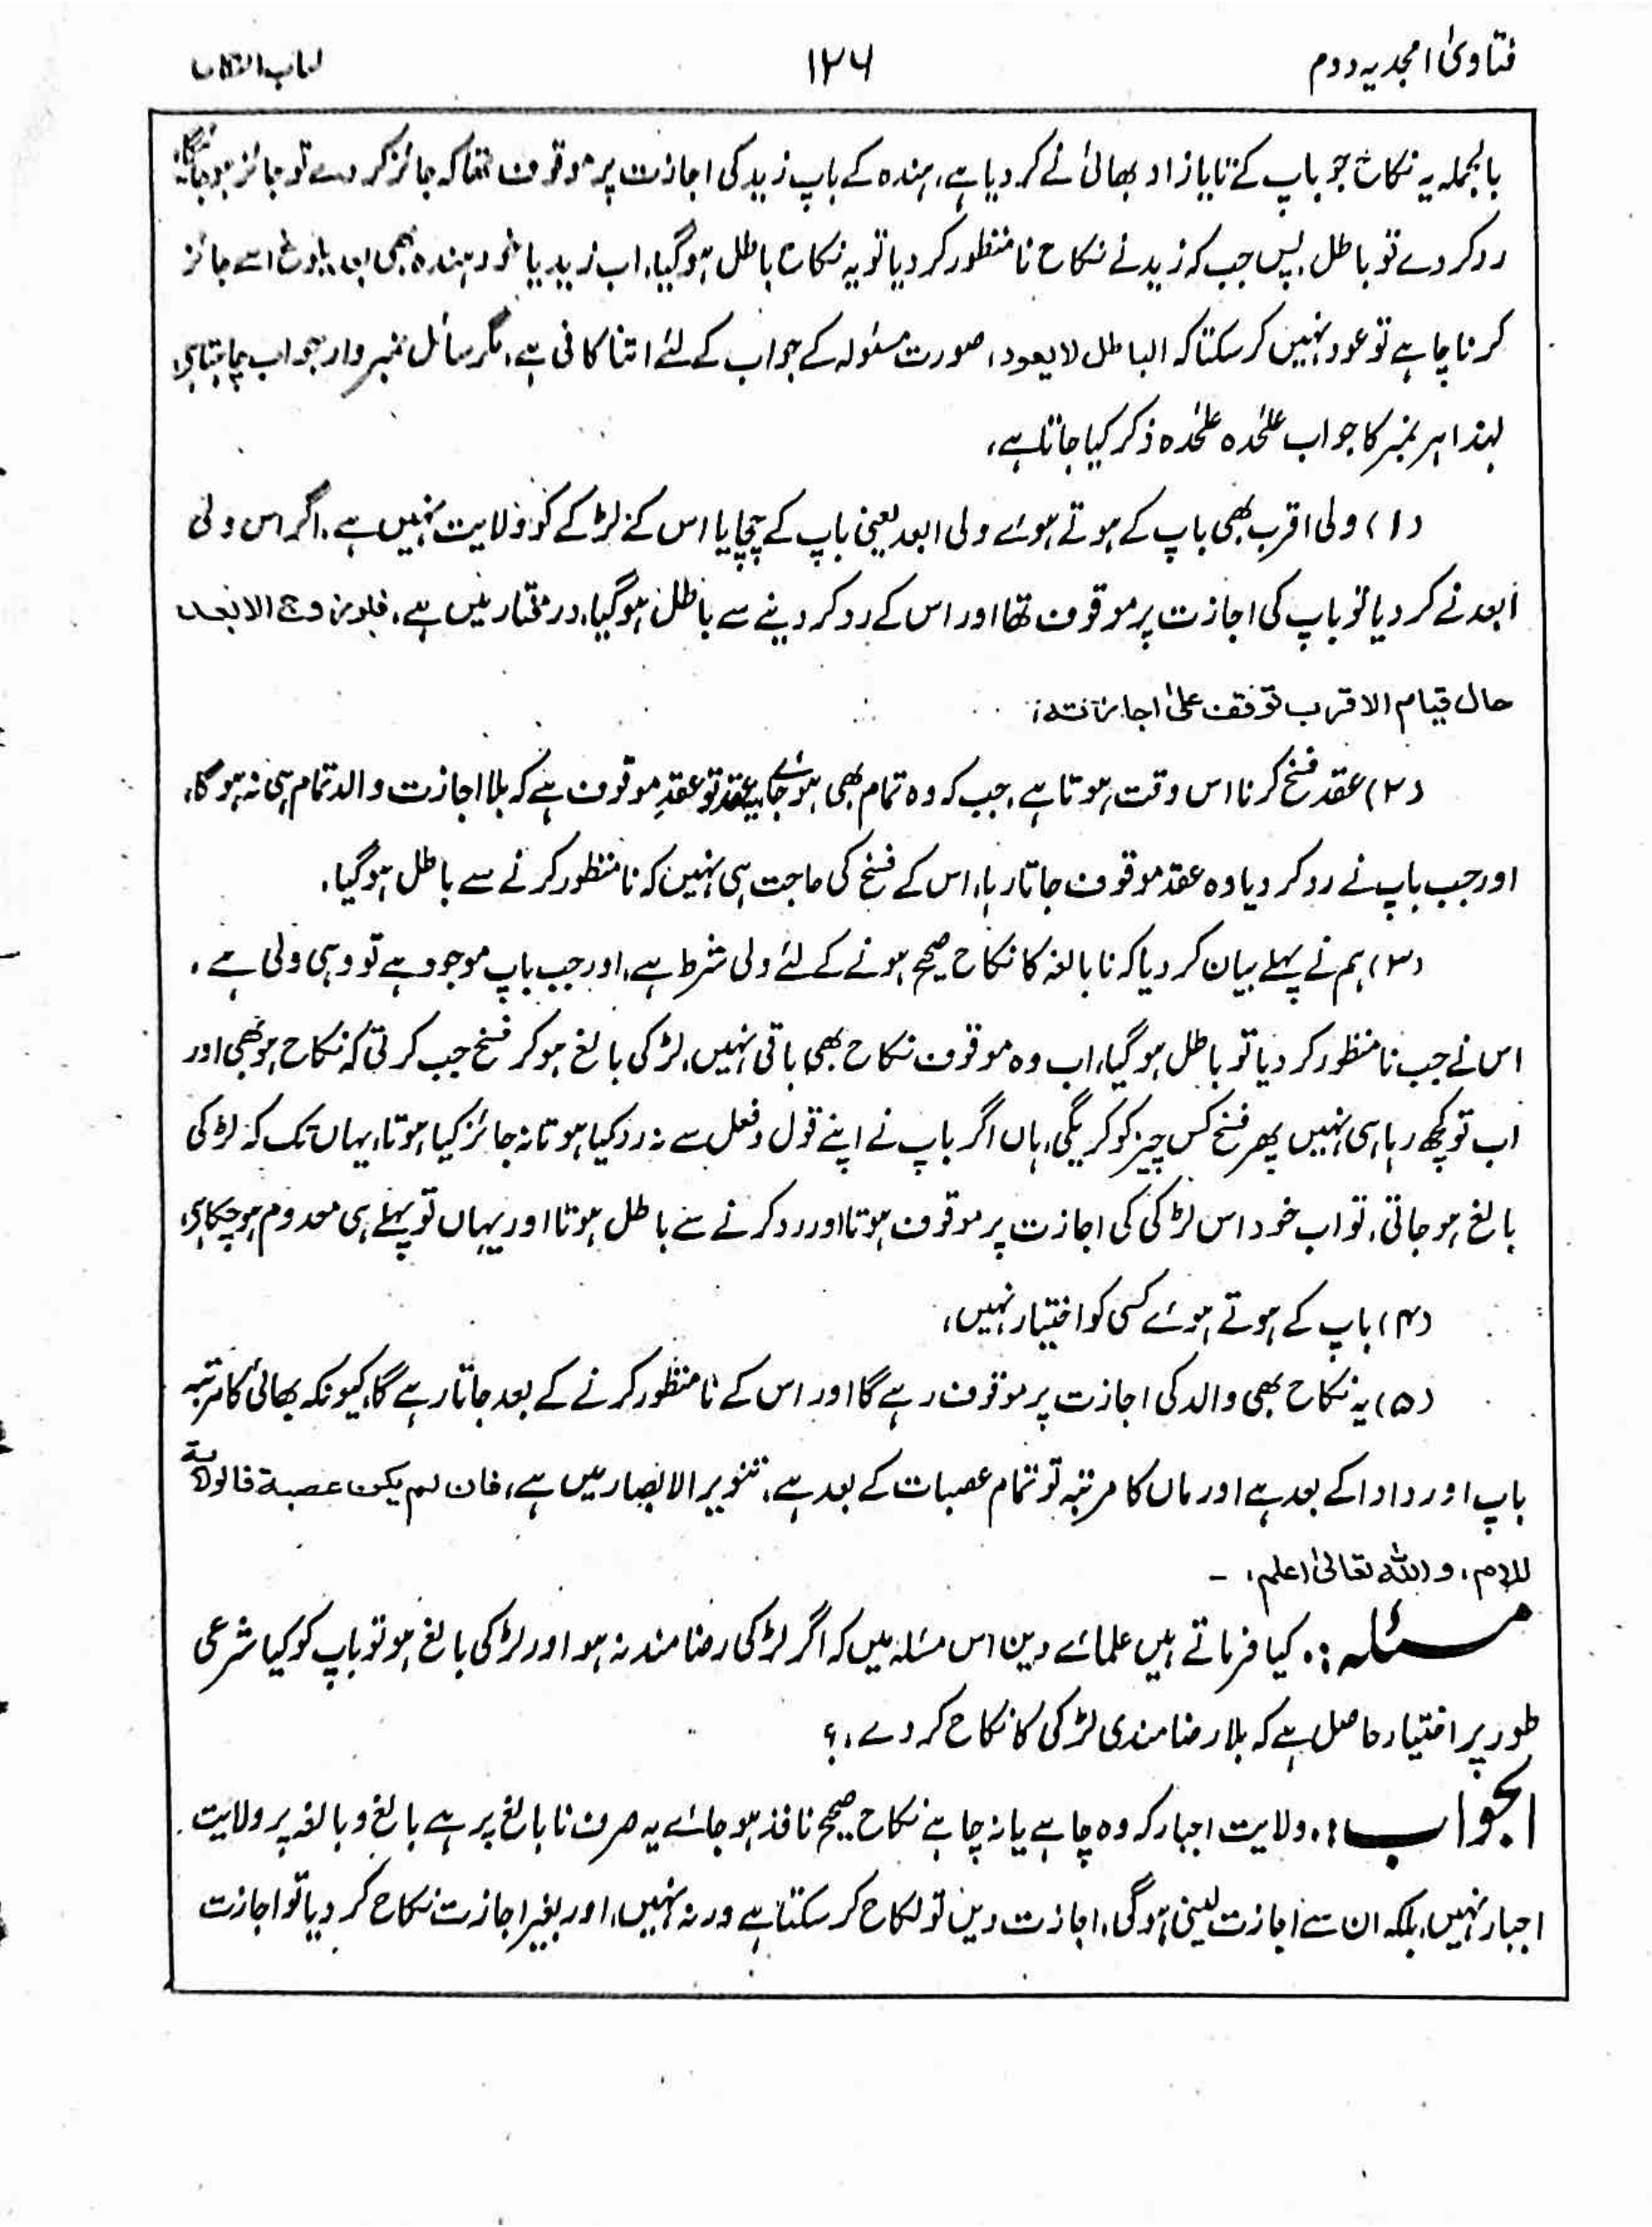 فتاویٰ امجدیہ دوم
۱۲۶
کتاب النکاح
بالجملہ یہ نکاح جو باپ کے تایا زاد بھائی نے کر دیا ہے، ہندہ کے باپ زید کی اجازت پر موقوف تھا کہ جائز کر دے تو جائز ہو جائیگا،
رد کر دے تو باطل، پس جب کہ زید نے نکاح نا منظور کر دیا تو یہ نکاح باطل ہو گیا، اب زید یا خود ہندہ بھی بعد بلوغ اسے جائز
کرنا چاہے تو عود نہیں کر سکتا کہ الباطل لا یعود، صورت مسئولہ کے جواب کے لئے اتنا کافی ہے، مگر سائل نمبر وار جواب چاہتا ہے
لہٰذا ہر نمبر کا جواب علٰحدہ علٰحدہ ذکر کیا جاتا ہے،
(۱) ولی اقرب بھی باپ کے ہوتے ہوئے ولی ابعد یعنی باپ کے چچا یا اس کے لڑکے کو ولایت نہیں ہے، اگر اس ولی
ابعد نے کر دیا تو باپ کی اجازت پر موقوف تھا اور اس کے رد کر دینے سے باطل ہو گیا، در مختار میں ہے، فلو زوج الابعد
حال قیام الاقرب توقف علیٰ اجازتہ،
(۲) عقد فسخ کرنا اس وقت ہوتا ہے، جب کہ وہ تمام بھی ہو جائے یہ عقد تو عقدِ موقوف ہے کہ بلا اجازت والد تمام ہی نہ ہوگا،
اور جب باپ نے رد کر دیا وہ عقد موقوف جاتا رہا، اس کے فسخ کی حاجت ہی نہیں کہ نا منظور کرنے سے باطل ہو گیا،
(۳) ہم نے پہلے بیان کر دیا کہ نابالغہ کا نکاح صحیح ہونے کے لئے ولی شرط ہے، اور جب باپ موجود ہے تو وہی ولی ہے،
اس نے جب نا منظور کر دیا تو باطل ہو گیا، اب وہ موقوف نکاح بھی باقی نہیں، لڑکی بالغ ہو کر فسخ جب کرتی کہ نکاح ہو بھی اور
اب تو کچھ رہا ہی نہیں پھر فسخ کس چیز کو کریگی، ہاں اگر باپ نے اپنے قول و فعل سے نہ رد کیا ہوتا نہ جائز کیا ہوتا، یہاں تک کہ لڑکی
بالغ ہو جاتی، تو اب خود اس لڑکی کی اجازت پر موقوف ہوتا اور رد کرنے سے باطل ہوتا اور یہاں تو پہلے ہی معدوم ہو چکا ہے
(۴) باپ کے ہوتے ہوئے کسی کو اختیار نہیں،
(۵) یہ نکاح بھی والد کی اجازت پر موقوف رہے گا اور اس کے نا منظور کرنے کے بعد جاتا رہے گا، کیونکہ بھائی کا مرتبہ
باپ اور دادا کے بعد ہے اور ماں کا مرتبہ تو تمام عصبات کے بعد ہے، تنویر الابصار میں ہے، فان لم یکن عصبۃ فالولایۃ
للام، واللہ تعالیٰ اعلم، ۔
مسئلہ:۔ کیا فرماتے ہیں علمائے دین اس مسئلہ میں کہ اگر لڑکی رضامند نہ ہو اور لڑکی بالغ ہو تو باپ کو کیا شرعی
طور پر اختیار حاصل ہے کہ بلا رضامندی لڑکی کا نکاح کر دے،؟
الجواب:۔ ولایت اجبار کہ وہ چاہے یا نہ چاہے نکاح صحیح نافذ ہو جائے یہ صرف نابالغ پر ہے بالغ و بالغہ پر ولایت
اجبار نہیں، بلکہ ان سے اجازت لینی ہوگی، اجازت دیں تو نکاح کر سکتا ہے ورنہ نہیں، اور بغیر اجازت نکاح کر دیا تو اجازت